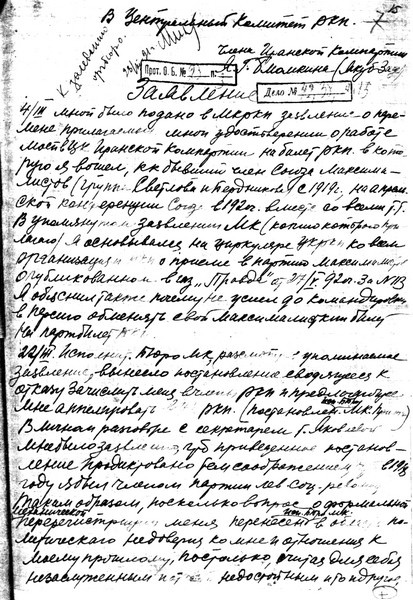 В Центральный Комитет РКП.
Члена Иранской Компартии
Я. Г. Блюмкина (Якуб-Заде)
К заседанию
Оргбюро.
Прот. О. Б. № 23 п.
Дело №
Заявление
4/III мной было подано в МКРКП заявление о
мене прилагаемого мной удостоверения о работе
моей в ЦК Иранской Компартии на билет РКП. в кото-
рую я вошел, как бывший член Союза Максима-
листов (группа Светлова и Бердникова) с 1919 г., на
ской конференции Союза в 1920 г. вместе со всеми т.т.
В упомянутом заявлении МК (копию которого при-
лагаю) я основывался на циркуляре ЦКРКП ко всем
организациям о приеме в партию максималистов
опубликованном в газ. „Правда" от
Я объяснил также почему не успел до командировки
в Персию обменять свой Максималистский билет
на партбилет РКП.
22/III. Исполнит. Бюро МК, рассмотрев упоминаемое
заявление, вынесло постановление сводящееся к
отказу зачислить меня в члены РКП и
мне апеллировать РКП. (постановлен. МК.
В личном разговоре с секретарем т. Яковлевой
мне было заявлено, что приведенное постанов-
ление продиктовано тем соображением, в 1918
году я был членом партии лев. соц. револ.
Таким образом, поскольку вопрос о формальной
механической
перерегистрации меня перенесен в область по-
литического недоверия ко мне и отношения к
моему прошлому, постольку, считая для себя
незаслуженным и недостойным и то и другое,